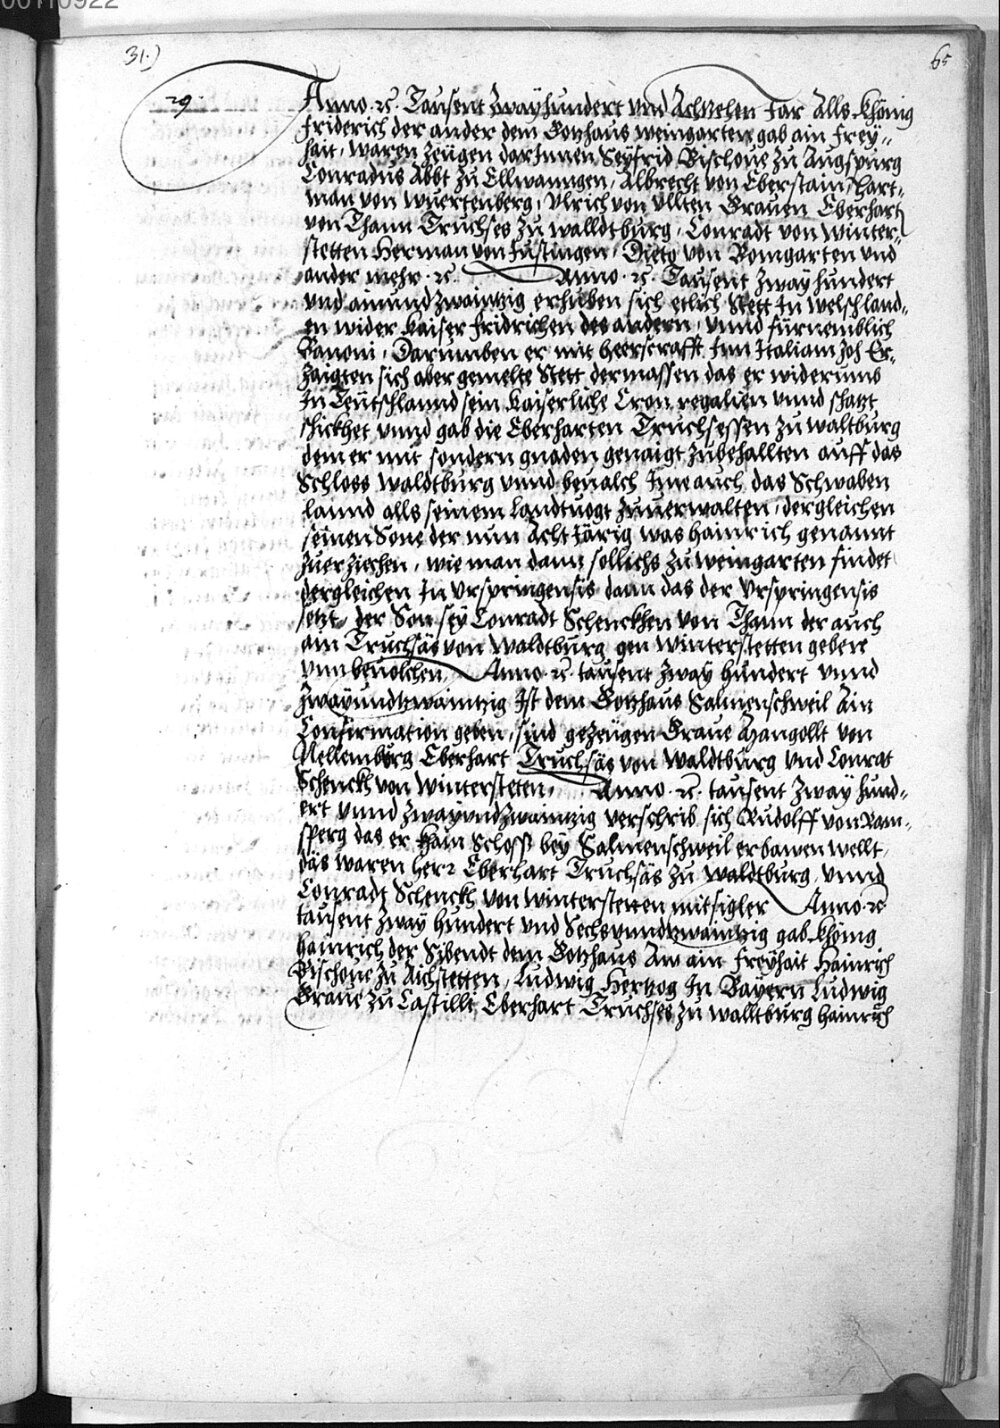 00110922
31.)
65
29.
Anno. &c. Tausent Zwayhundert vnd Achtzehen Jar Alls Khönig
Friderich der ander dem Gotzhaus Weingarten gab ain Frey¬
hait, waren zeügen darInnen Seyfrid Bischoue zu Augspurg
Conradus Abbt zu Ellwanngen, Albrecht von Eberstain, Hart¬
man von Wuertenberg, Vlrich von Vllten Grauen Eberhart
von Thann Truchses zu Walldtburg, Conradt von Winter¬
stetten Herman von Justingen, Dieto von Bomgarten vnd
ander mehr. &c. Anno. &c. Tausent Zway hundert
vnd ainundzwaintzig erhuben sich etlich Stett In Welschland¬
en wider Kaiser Fridrichen des andern, vnnd fürnemblich
Banoni, Darumben er mit Heerscrafft Inn Italiam zoh Er¬
zaigten sich aber gemelte Stett dermassen das er widerumb
In Teutschlannd sein Kaiserliche Cron regalien vnnd schatzt
schickhet vnnd gab die Eberharten Truchsessen zu Waltburg
dem er mit sondern gnaden genaigt zubehallten auff das
Schloss Waldtburg vnnd beualch Ime auch das Schwaben
lannd alls seinem Landtuogt zuuerwalten, dergleichen
seinen Sone der nun Acht Järig was Hainrich genannt
zuerziechen, wie man dann sollichs zu Weingarten findet
dergleichen In Vrspringensis dann das der Vrspringensis
setzt, der Son sey Conradt Schenckhen von Thann der auch
ain Truchsäs von Waldtburg gen Winterstetten gehere
vnn beuolchen. Anno. &c. tausent Zway hundert vnnd
Zwayundtzwaintzig Ist dem Gotzhaus Salmenschweil Ain
Confirmation geben, sind gezeugen Graue Mangollt von
Nellemburg Eberhart Truchsäs von Waldtburg vnd Conrat
Schenckh von Wintersteten, Anno. &c. tausent Zway hund¬
ert vnnd Zwayvndzwaintzig verschrib sich Rudolff von Ram¬
sperg das er kain Schloss bey Salmenschweil erbawen wellt,
däs waren herr Eberhart Truchsäs zu Waldtburg, vnnd
Conradt Schenckh von Winterstetten mitsigler Anno. &c.
tausent Zway hundert vnd Sechsvnndtzwaintzig gab Khönig
Hainrich der Sibendt dem Gotzhaus Aw ain Freyhait Hainrich
Bischoue zu Aichstetten, Ludwig Hertzog In Bayern Ludwig
Graue zu Castilli Eberhart Truchses zu Walltburg Hainrich